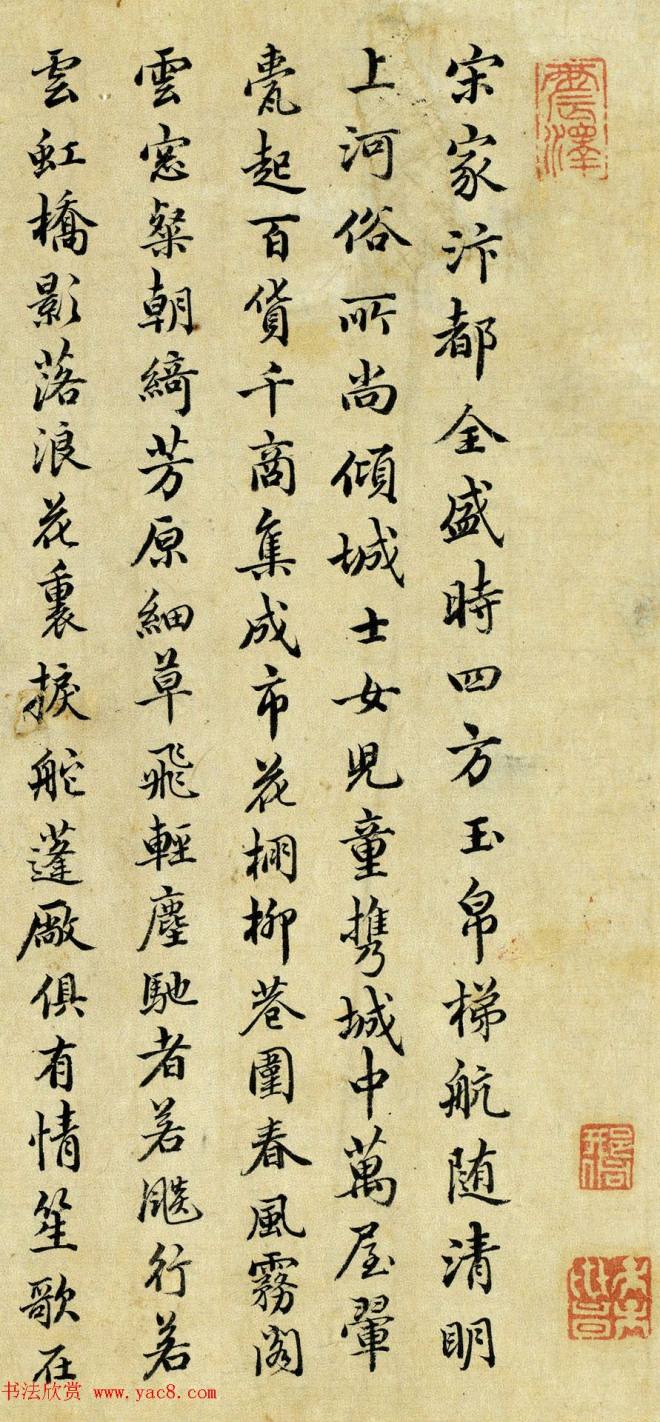 震澤
宋家汴都全盛時四方玉帛梯航随清明
上河俗所尚傾城士女兒童携城中萬屋翬
甍起百貨千商集成市花棚柳巷圍春風霧閣
雲窓粲朝綺芳原細草飛輕塵馳者若飈行若
雲虹橋影落浪花裏捩舵蓬厰俱有情笙歌在
书法欣赏 www.yac8.com